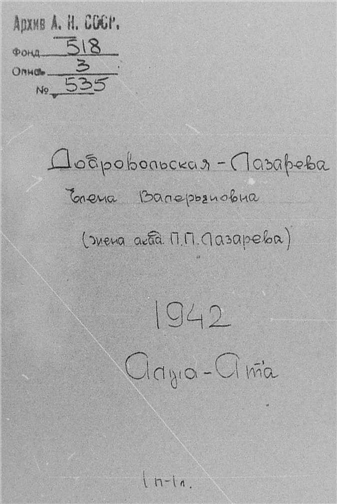 Архив А. Н. СССР.
Фонд 518
Опись 3
№ 535
Добровольская - Лазарева
Елена Валерьяновна
(жена акад. П.П. Лазарева)
1942
Алма-Ата
1 п-1 л.